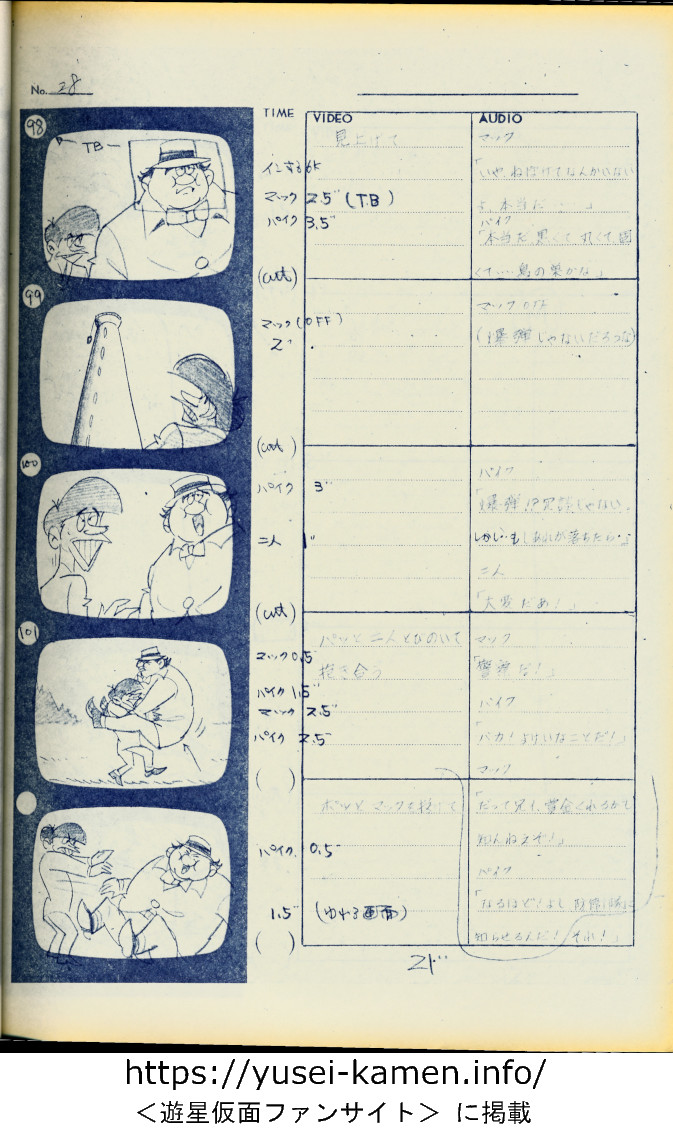 No. 28
TIME
VIDEO
AUDIO
98
TB
見上げて
マック
マック 2.5" (T.B)
パイク 3.5"
「いや、ねぼけてなんかいない
よ、本当だ・・・」
パイク
「本当だ、黒くて、丸くて、固
くて・・・鳥の巣かな」
(cut)
99
マック (OFF)
2"
マック OFF
(爆弾じゃないだろうな)
(cut)
100
パイク 3"
二人 1"
パイク
「爆弾!?冗談じゃない。
しかし・・もしあれが落ちたら・・」
二人
「大変だあ!」
(cut)
101
パッと二人とびのいて
抱き合う
マック 0.5"
パイク 1.5"
マック 2.5"
パイク 2.5"
マック
「警察だ!」
パイク
「バカ!よけいなことだ!」
マック
( )
ポッとマックを投げて
パイク. 0.5"
1.5" (ゆれる画面)
「だって兄イ、賞金くれるかも
知んねえぞ!」
パイク
「なるほど!よし
知らせるんだ!それ!」
( )
https://yusei-kamen.info/
＜遊星仮面ファンサイト＞ に掲載